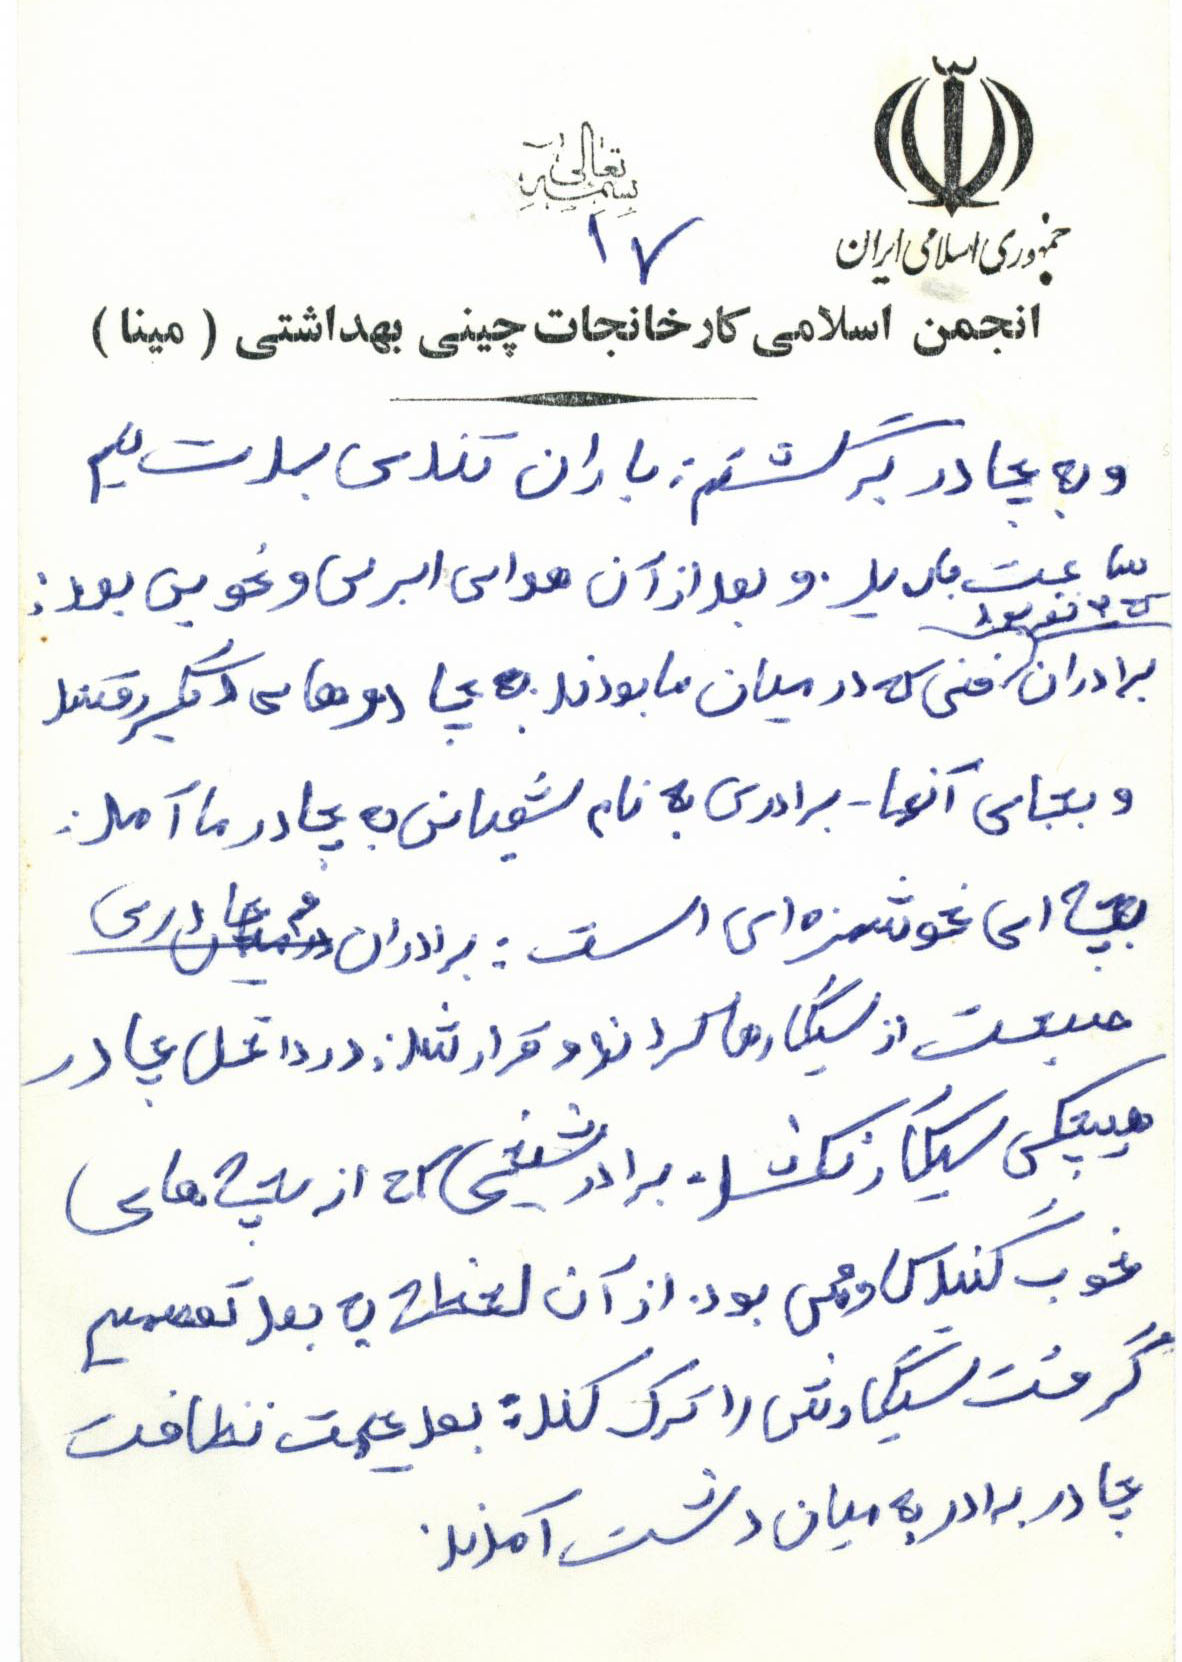 بسمه تعالی
۱۷
جمهوری اسلامی ایران
انجمن اسلامی کارخانجات چینی بهداشتی ( مینا )
و به چادر برگشتم. باران تندی بمدت نیم
ساعت بارید. و بعد از آن هوای ابری و خوبی بود:
نفر بود
برادران فنی که در میان ما بودند به چادرهای دیگر رفتند
و بجای آنها - برادری به نام شعبانی به چادر ما آمد.
بچه ای خوشمزه ای است: برادران هم چادری
صحبت از سیگار را کردند و قرار شد: در داخل چادر
هیچکس سیگار نکشد. برادر شفیعی که از بچه های
خوب گنبد کاووس بود. از آن لحظه به بعد تصمیم
گرفت سیگارش را ترک کند: بعد جهت نظافت
چادر برادر به میان دشت آمدند.